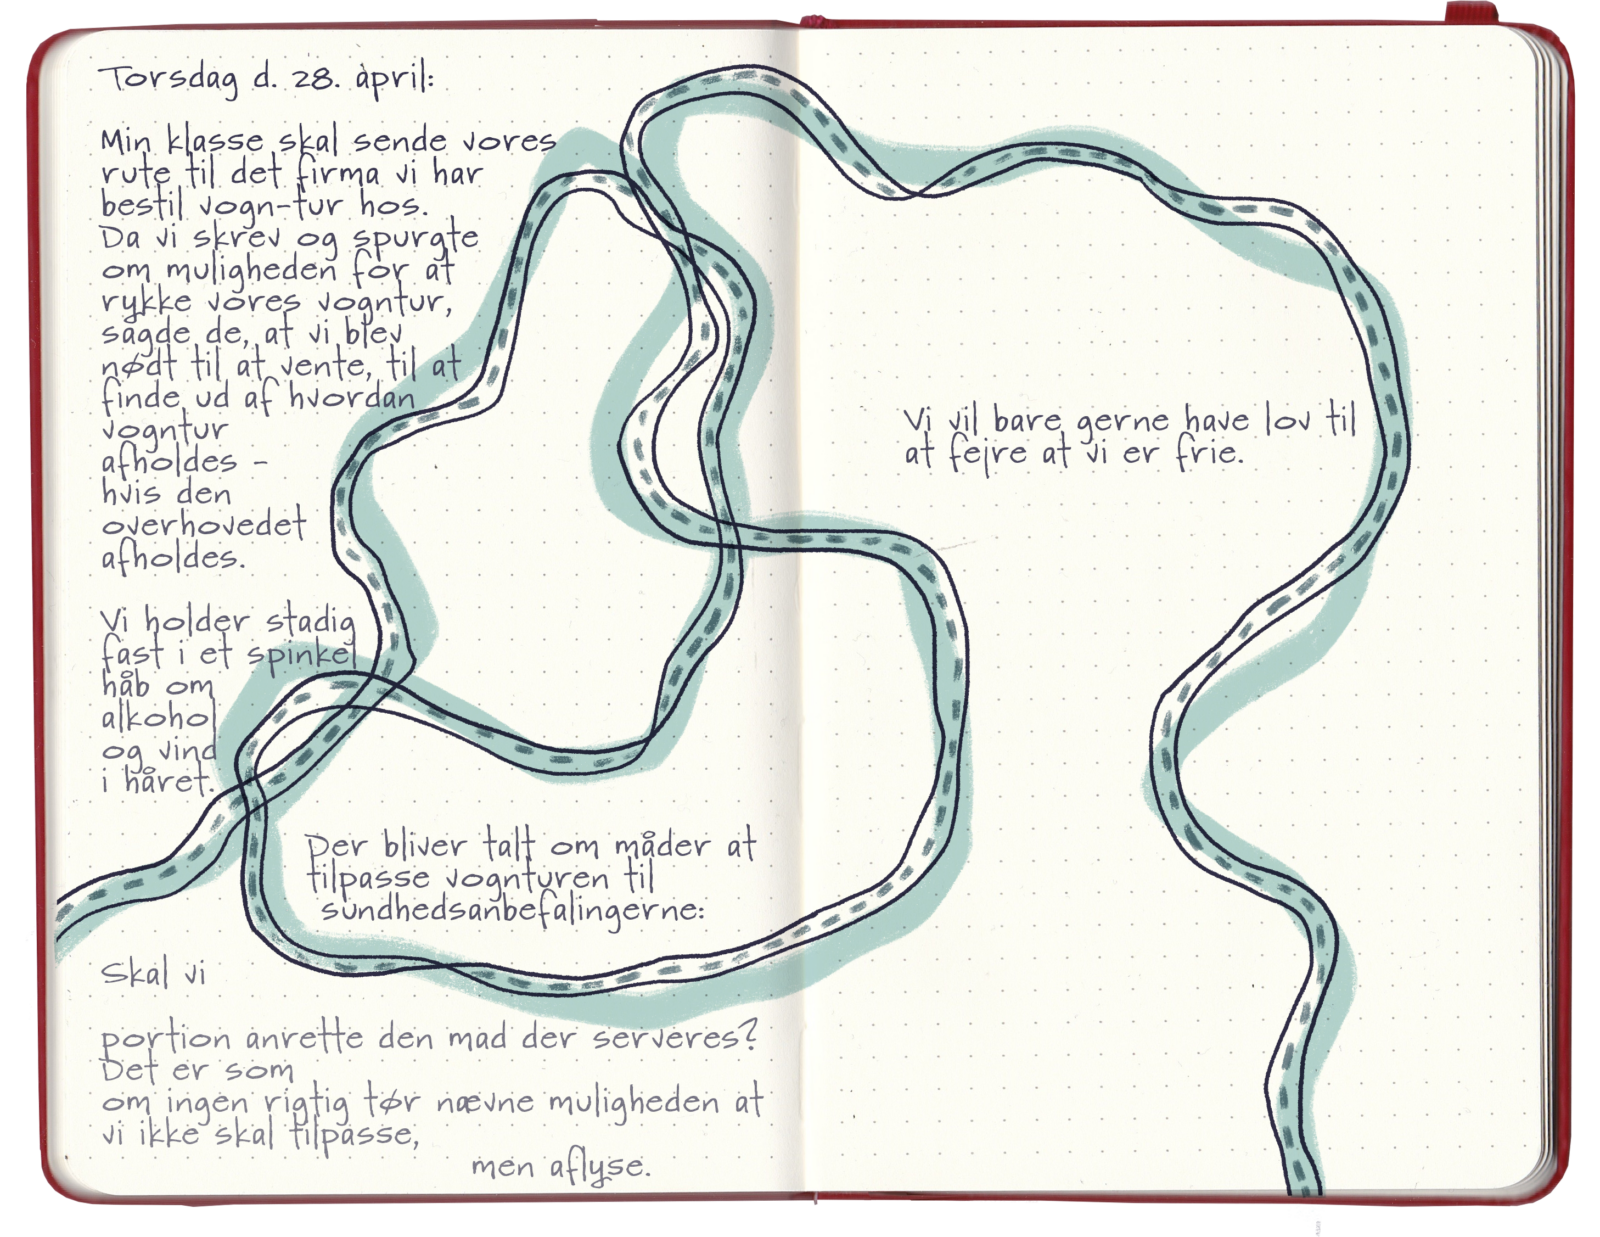 Torsdag d. 28. april:
Min klasse skal sende vores
rute til det firma vi har
bestil vogn-tur hos.
Da vi skrev og spurgte
om muligheden for at
rykke vores vogntur,
sagde de, at vi blev
nødt til at vente, til at
finde ud af hvordan
vogntur
afholdes -
hvis den
overhovedet
afholdes.
Vi holder stadig
fast i et spinkel
håb om
alkohol
og vind
i håret.
Der bliver talt om måder at
tilpasse vognturen til
sundhedsanbefalingerne:
Skal vi
portion anrette den mad der serveres?
Det er som
om ingen rigtig tør nævne muligheden at
vi ikke skal tilpasse,
men aflyse.
Vi vil bare gerne have lov til
at fejre at vi er frie.